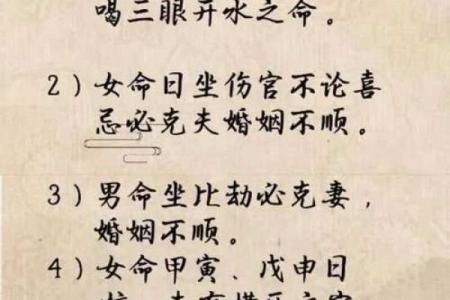 喝三眼开水之命。
2）女命日坐伤官不论喜
忌必克夫婚姻不顺。
3）男命坐比劫必克妻，
婚姻不顺。
4）女命甲寅、戊申日